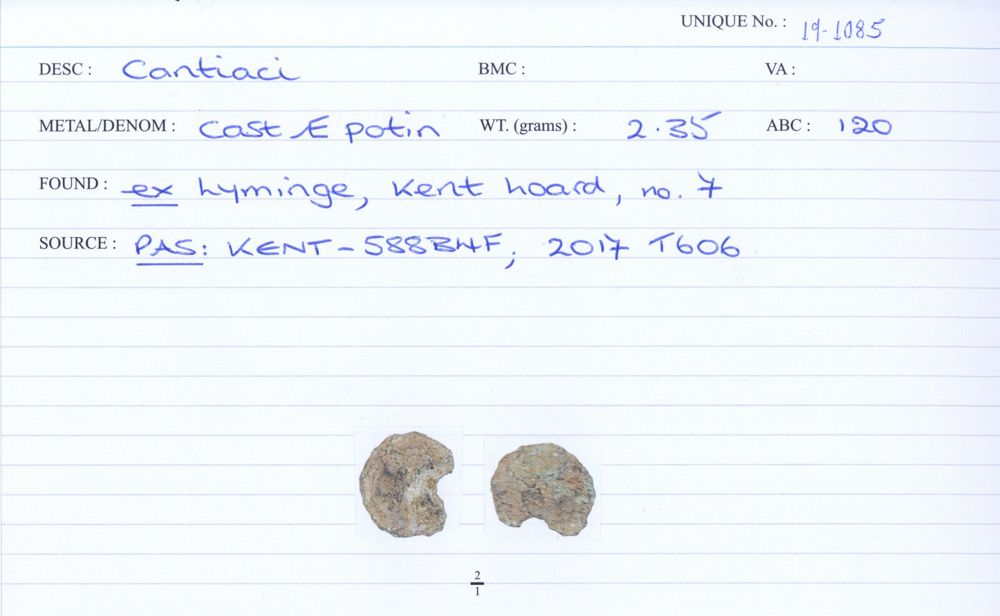 UNIQUE No. : 19-1085
DESC : Cantiaci BMC : VA :
METAL/DENOM : Cast Æ potin WT. (grams) : 2.35 ABC : 120
FOUND : ex hyminge, Kent hoard, no. 7
SOURCE : PAS: KENT-588B4F; 2017 T606
2
1